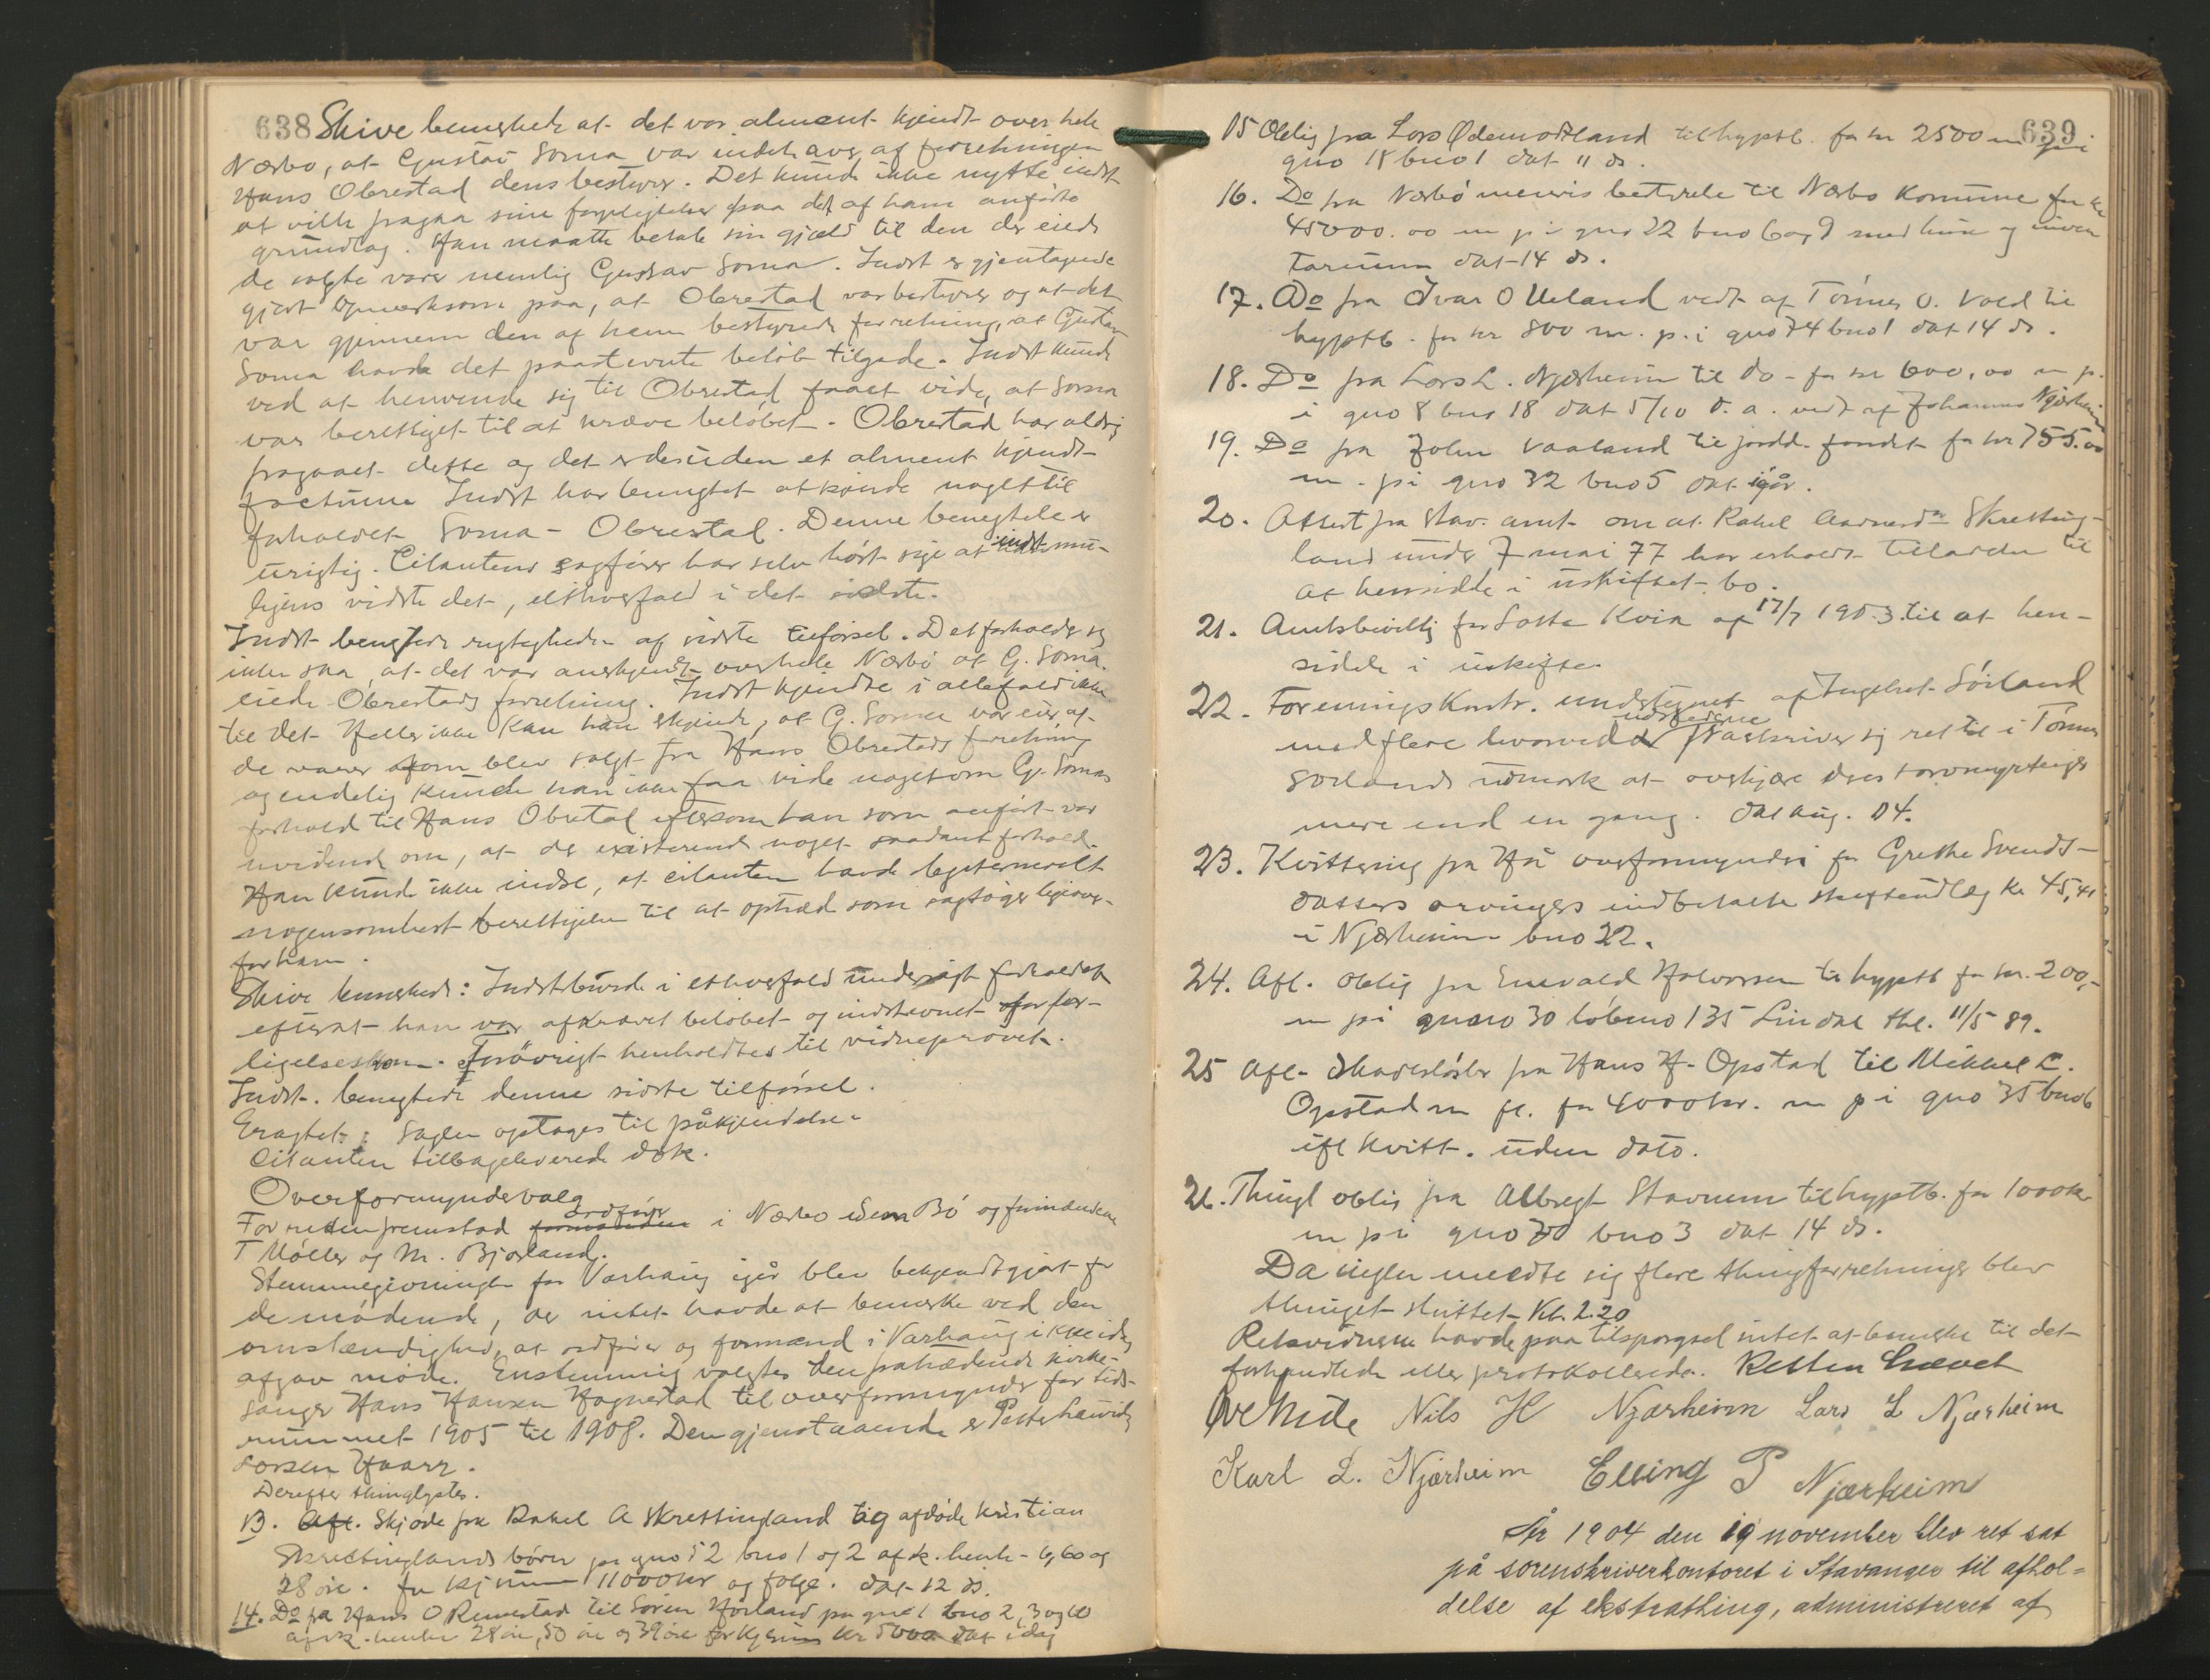 638 Skive bemerkede at det var alment kjendt over hele
Nærbø, at Gustav Soma var indehaver af forretningen
Hans Obrestad dens bestyrer. Det kunde ikke nytte indst
at ville fragaa sine forpligtelser paa det af ham anførte
grundlag. Han maatte betale sin gjæld til den der eiede
de solgte varer nemlig Gustav Soma. Indst er gjentagende
gjort opmerksom paa, at Obrestad var bestyrer og at det
var gjennem den af ham bestyrede forretning, at Gustav
Soma havde det paastevnte beløb tilgode. Indst kunde
ved at henvende sig til Obrestad faaet vide, at Soma
var berettiget til at kræve beløbet. Obrestad har aldrig
fragaaet dette og det er desuden et alment kjendt
factum. Indst har benegtet at kjende noget til
forholdet Soma - Obrestad. Denne benegtelse er
urigtig. Citantens sagfører har selv hørt sige at indst mu-
ligens vidste det, ethverfald i det sidste.
Indst benegtede rigtigheden af sidste tilførsel. Det forholder sig
ikke saa, at det var anerkjendt over hele Nærbø at G. Soma
eiede Obrestads forretning. Indst kjendte i alfald ikke
til det. Heller ikke kan han erkjende, at G. Soma var eier af
de varer som blev solgt fra Hans Obrestads forretning
og endelig kunde han ikke faa vide noget om G. Somas
forhold til Hans Obrestad eftersom han som anført var
uvidende om, at der existerende noget saadant forhold.
Han kunde ikke indse, at citanten havde
nogensomhelst berettigelse til at optræde som sagsøger ligeover-
for ham.
Skive bemerkede: Indst burde i ethverfald undersøgt forholdet
efterat han var afkrævet beløbet og indstevnet for for-
ligelseskom. Forøvrigt henholdtes til vidneprovet.
Indst. benegtede denne sidste tilførsel.
Eragtet: Sagen optages til påkjendelse.
Citanten tilbageleverede dok.
Overformyndervalg
For retten fremstod formanden ordfører i Nærbø Bø og formændene
T Møller og M. Bjorland.
Stemmegivningen for Varhaug igår blev bekjendtgjort for
de mødende, der intet havde at bemerke ved den
omstændighed, at ordfører og formænd i Varhaug ikke idag
afgav møde. Enstemmig valgtes den fratrædende kirke-
sanger Hans Hansen Hognestad til overformynder for tids-
rummet 1905 til 1908. Den gjenstaaende er Peter Lauritz
Larsen Haarr.
Derefter thinglystes.
13. Afl. Skjøde fra Rakel A Skrettingland og afdøde Kristian
Skrettinglands børn paa gno 52 bno 1 og 2 af sk. henh - 6,60 og
28 øre. for kjsum 11000 kr og følge. dat 12 ds.
14. Do fra Hans O Rimestad til Søren Hørland paa gno 1 bno 2, 3 og 10
af sk. henhv 28 øre, 50 øre og 39 øre for kjøsum kr 5000 dat idag
639
15 Oblig fra Lars Ødemotland til hyptb. for kr 2500 m p i
gno 18 bno 1 dat 11 ds.
16. Do fra Nærbø meieris bestyrelse til Nærbø Komune for kr
45000.00 m p i gno 22 bno 6 og 9 med huse og inven
tarium dat 14 ds.
17. Do fra Ivar O Ueland vedt af Tønnes O. Voll til
hyptb. for kr 800 m. p. i gno 74 bno 1 dat 14 ds.
18. Do fra Lars L. Njærheim til do - for kr 600,00 m p.
i gno 8 bno 18 dat 5/10 d. a. vedt af Johannes Njærheim
19. Do fra John Vaaland til jordd. fondet for kr 755.00
m. p i gno 32 bno 5 dat igår.
20. Attest fra Stav. amt om at Rakel Skretting-
land under 7 mai 77 har erholdt tilladelse til
at hensidde i uskiftet bo.
21. Amtsbevillg for Lotte Kvia af 17/7 1903 til at hen-
sidde i uskifte.
22. Foreningskontr. undertegnet af Ingebret Sørland
med flere hvorved udstederne fraskriver sig ret til i Tønnes
Sørlands udmark at overkjøre dens torvmyrteiger
mere end en gang. dat aug. 04.
23. Kvittering fra Hå overformynderi for Grethe Svends-
datters arvingers indbetalte skifteudlæg kr 45,41
i Njærheim bno 22.
24. Afl. oblig fra Enevald Halvorsen til hyptb for kr. 200,-
m p i gmno 30 løbeno 135 Lindal thl. 11/5 89.
25 Afl. skadesløsbr fra Hans H. Opstad til Mikkel C.
Opstad m fl. for 4000 kr. m p i gno 35 bno 6
ifl kvitt. uden dato.
26. Thingl oblig fra Albregt Stavnem til hyptb. for 1000 kr
m p i gno 70 bno 3 dat 14 ds.
Da ingen meldte sig flere thingforretninger blev
thinget sluttet Kl. 2.20
Retsvidnerne havde paa tilspørgsel intet at bemerke til det
forhandlede eller protokollerede. Retten hævet
Nils H Njærheim Lars L Njærheim
Karl L. Njærheim Elling P Njærheim
År 1904 den 19 november blev ret sat
på sorenskriverkontoret i Stavanger til afhol=
delse af ekstrathing, administreret af